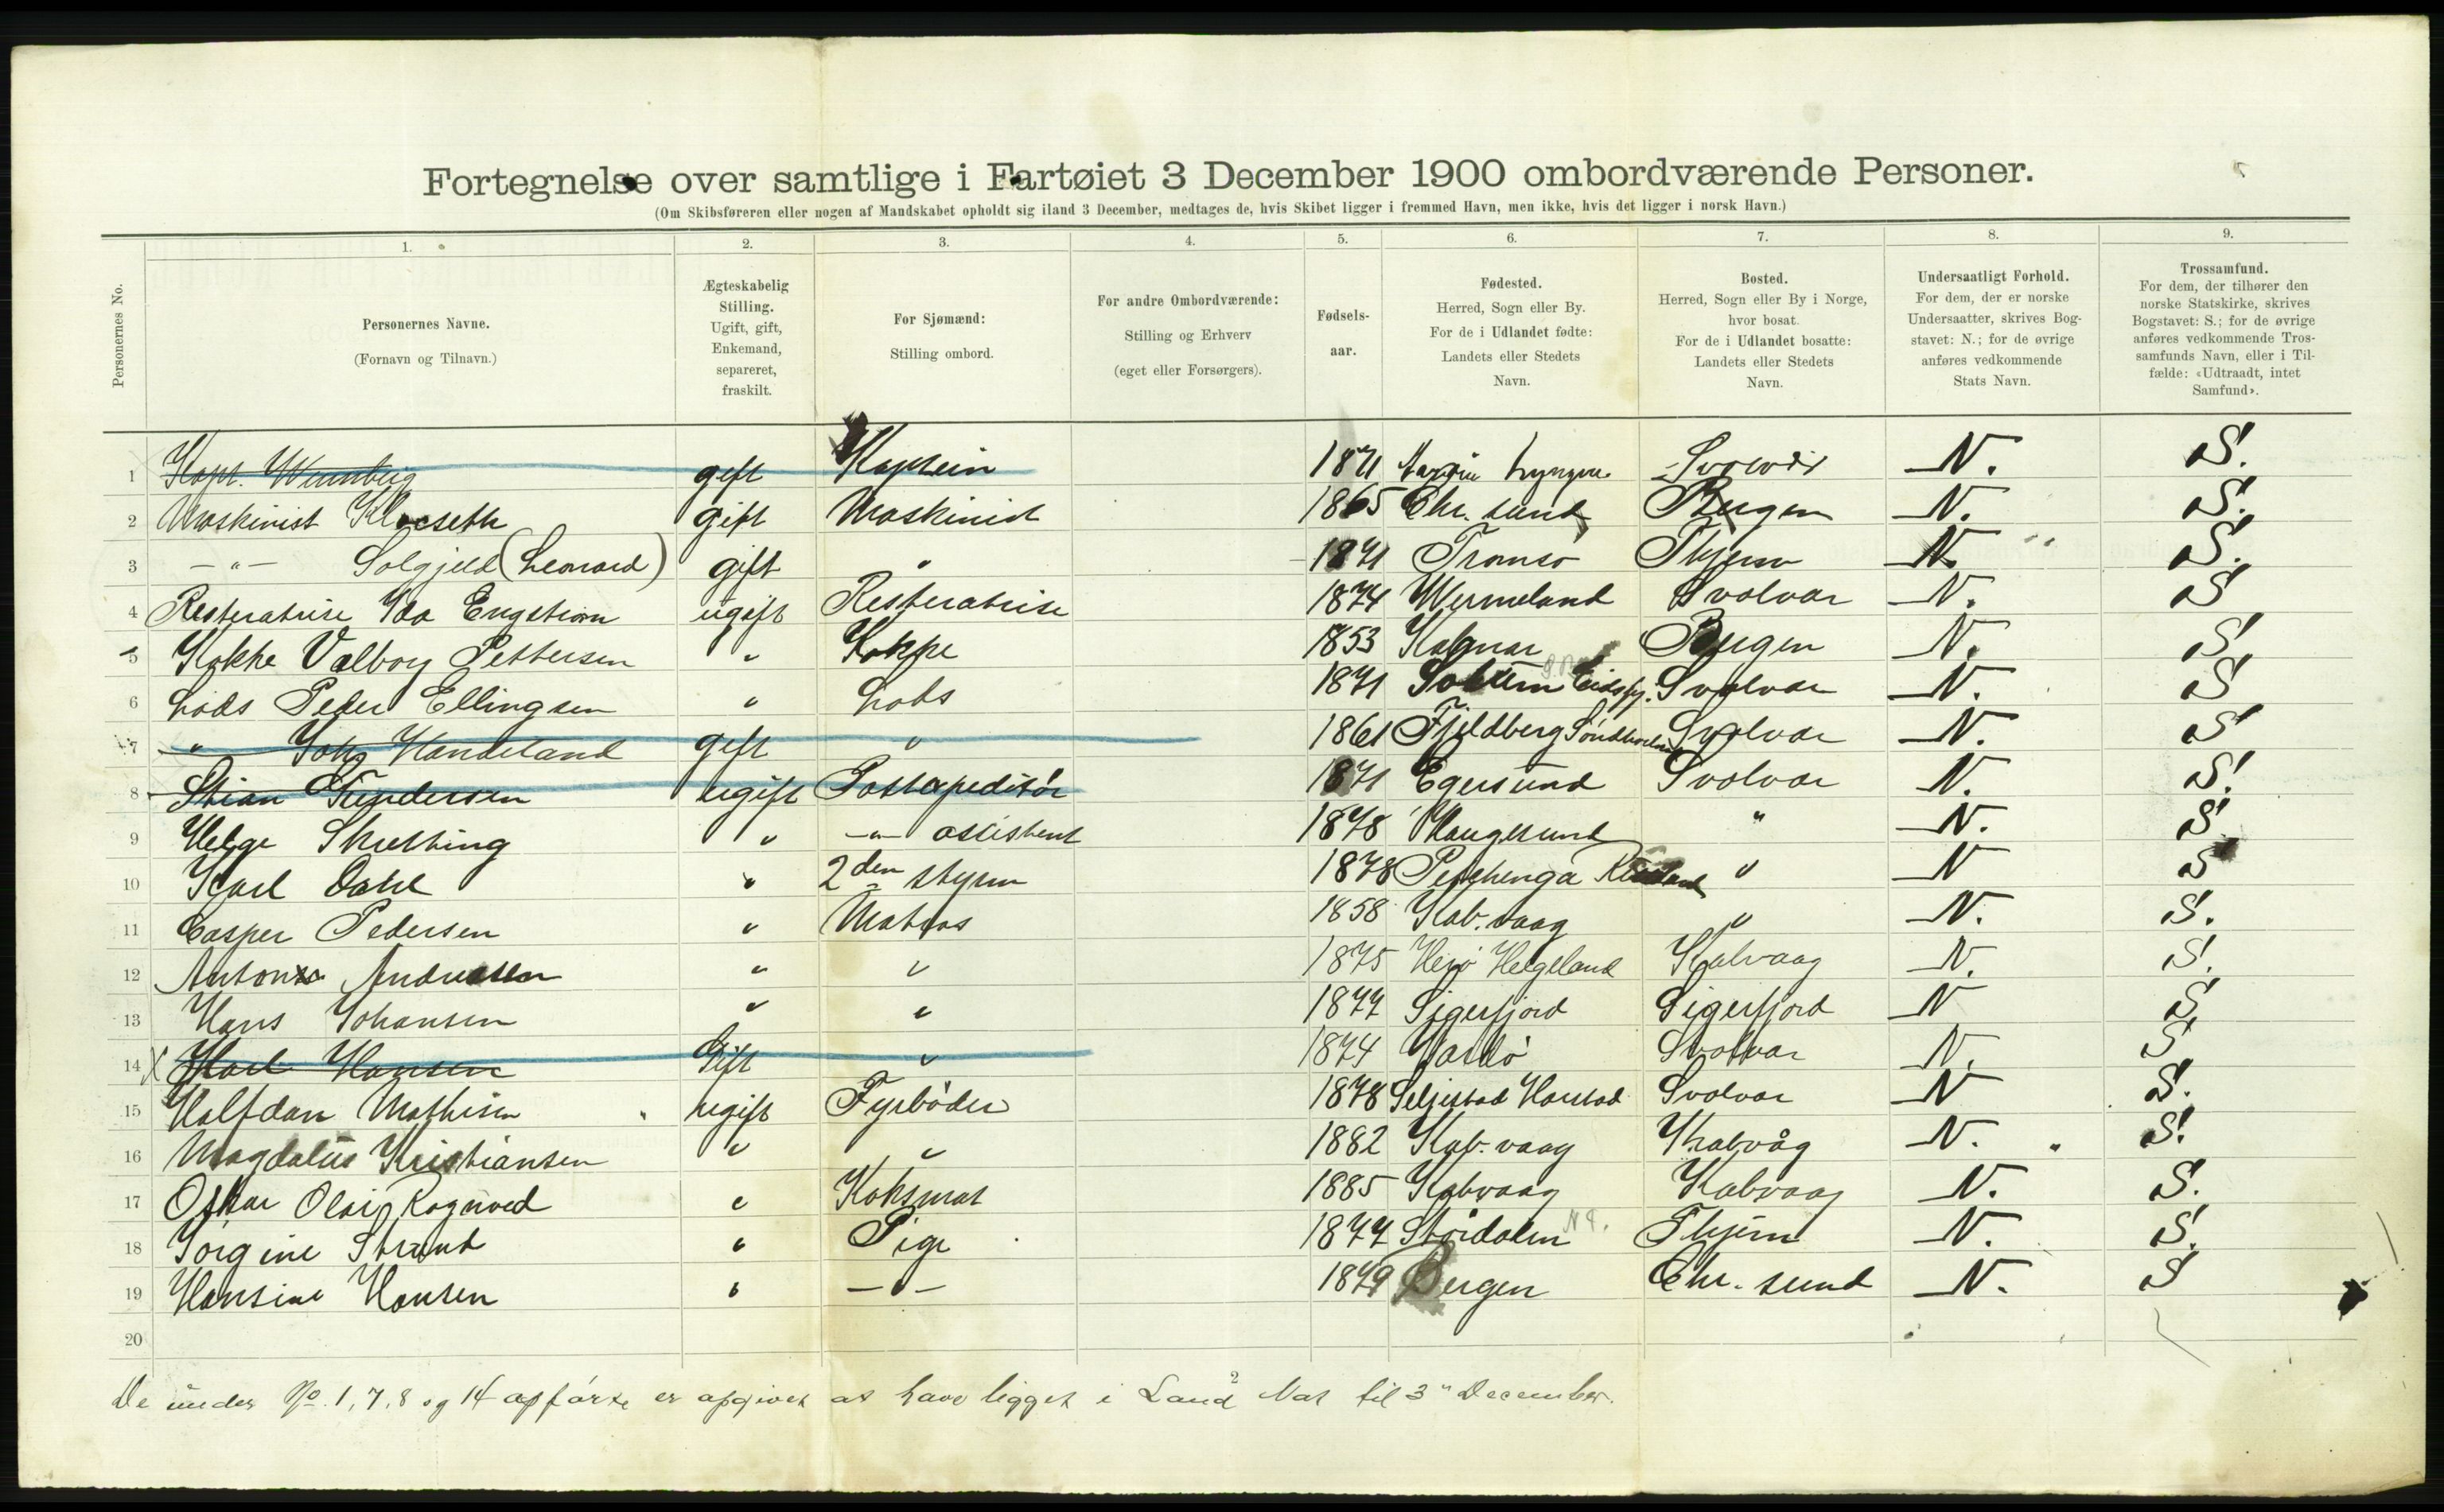 Fortegnelse over samtlige i Fartøiet 3 December 1900 ombordværende Personer.
(Om Skibsføreren eller nogen af Mandskabet opholdt sig iland 3 December, medtages de, hvis Skibet ligger i fremmed Havn, men ikke, hvis det ligger i norsk Havn.)
1. 2. 3. 4. 5. 6. 7. 8. 9.
Personernes No.
Personernes Navne.
(Fornavn og Tilnavn.)
Ægteskabelig
Stilling.
Ugift, gift,
Enkemand,
separeret,
fraskilt.
For Sjømænd:
Stilling ombord.
For andre Ombordværende:
Stilling og Erhverv
(eget eller Forsørgers).
Fødsels-
aar.
Fødested.
Herred, Sogn eller By.
For de i Udlandet fødte:
Landets eller Stedets
Navn.
Bosted.
Herred, Sogn eller By i Norge,
hvor bosat.
For de i Udlandet bosatte:
Landets eller Stedets
Navn.
Undersaatligt Forhold.
For dem, der er norske
Undersaatter, skrives Bog-
stavet: N.; for de øvrige
anføres vedkommende
Stats Navn.
Trossamfund.
For dem, der tilhører den
norske Statskirke, skrives
Bogstavet: S.; for de øvrige
anføres vedkommende Tros-
samfunds Navn, eller i Til-
fælde: «Udtraadt, intet
Samfund».
1 Kapt. gift Kaptein 1871 N. S.
2 Maskinist gift Maskinist 1865 Chr. sund Bergen N. S.
3 — " — Solgjeld (Leonard) gift " 1871 Tromsö Thjem N. S.
4 Ida Engstrøm ugift 1874 Wermeland Svolvær N. S
5 Kokke Valborg Pettersen " Kokke 1853 Bergen N. S
6 Lods Peder Ellingsen " Lods 1871 Svolvær N. S
7 " gift " 1861 Fjeldberg Svolvær N. S
8 Stian ugift 1871 Egersund Svolvær N. S.
9 Helge " — " — assistent 1878 Haugesund " N. S
10 Karl Dahl " 2den styrm 1878 " N S
11 Casper Pedersen " Matros 1858 Kab. vaag " N. S.
12 Andreassen " " 1875 Helgeland Kalvaag N. S.
13 Hans Johansen " " 1877 Sigerfjord Sigerfjord N S
14 X Karl Hansen Gift " 1874 Vardö Svolvær N. S
15 Halfdan Mathisen ugift Fyrböder 1878 Seljestad Harstad Svolvær N S.
16 Magdalus Kristiansen " " 1882 Kab. vaag Kabvåg N. S.
17 Oskar Olai Ragnvod " Koksmat 1885 Kabvaag Kabvaag N. S.
18 Jørgine Strand " Pige 1877 Størdalen Thjem N. S.
19 Hansine Hansen " — " — 1879 Bergen Chr. sund N. S
20
De under No. 1, 7, 8 og 14 opførte er opgivet at have ligget i Land Nat til 3" December.